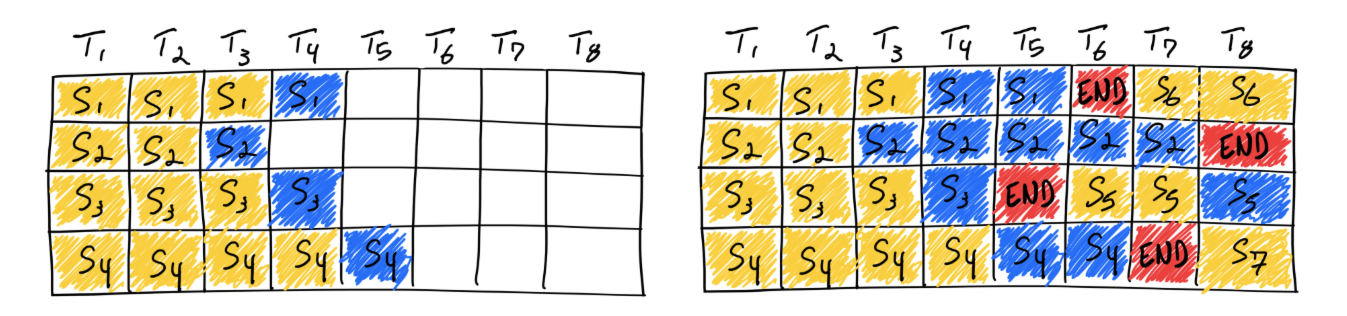 T1 T2 T3 T4 T5 T6 T7 T8
S1 S1 S1 S1
S2 S2 S2
S3 S3 S3 S3
S4 S4 S4 S4 S4
T1 T2 T3 T4 T5 T6 T7 T8
S1 S1 S1 S1 S1 END S6 S6
S2 S2 S2 S2 S2 S2 S2 END
S3 S3 S3 S3 END S5 S5 S5
S4 S4 S4 S4 S4 S4 END S7